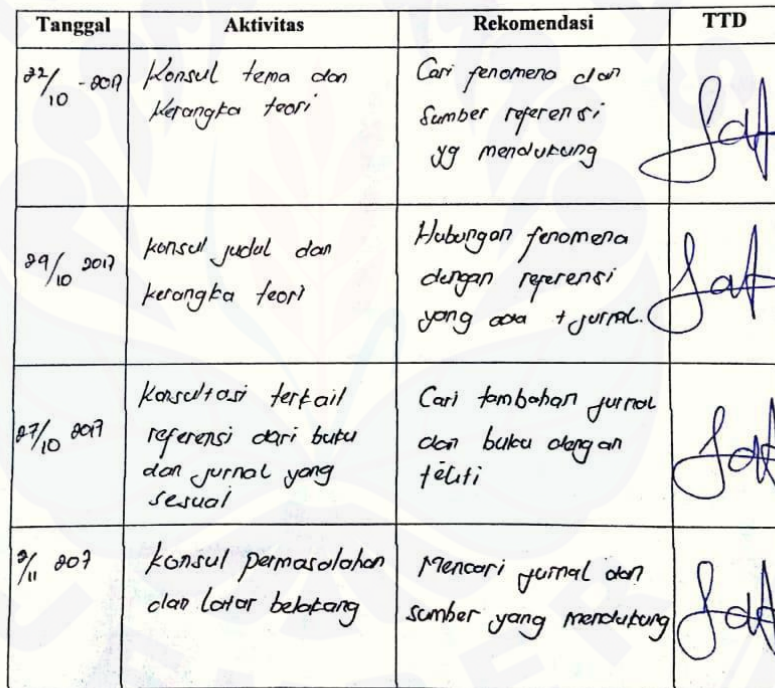 Tanggal Aktivitas Rekomendasi TTD
22/10 - 2017
Konsul tema dan
Kerangka teori
Cari fenomena dan
Sumber referensi
yg mendukung
29/10 2017
konsul judul dan
kerangka teori
Hubungan fenomena
dengan referensi
yang ada + jurnal.
27/10 2017
Konsultasi terkait
referensi dari buku
dan jurnal yang
sesuai
Cari tambahan jurnal
dan buku dengan
teliti
2/11 207
konsul permasalahan
dan latar belakang
Mencari jurnal dan
sumber yang mendukung